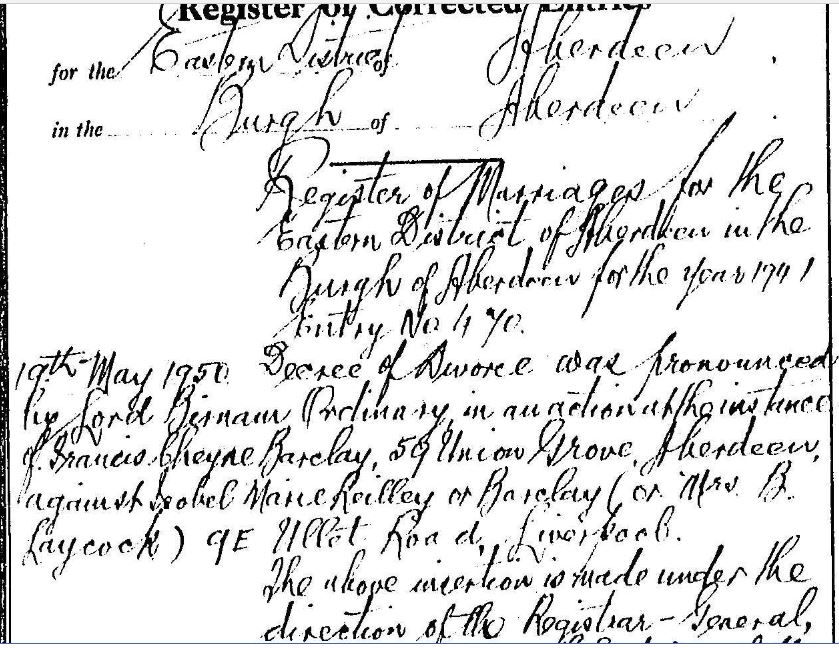 Register of Corrected Entries
for the Eastern District of Aberdeen
in the Burgh of Aberdeen
Register of Marriages for the
Eastern District of Aberdeen in the
Burgh of Aberdeen for the year 1941
Entry No 470.
19th May 1950. Decree of Divorce was pronounced
by Lord Birnam Ordinary in an action at the instance
of Francis Cheyne Barclay, 59 Union Grove, Aberdeen,
against Isobel Marie Reilley or Barclay (or Mrs B.
Laycock) 9E Ullet Road, Liverpool.
The above insertion is made under the
direction of the Registrar-General,